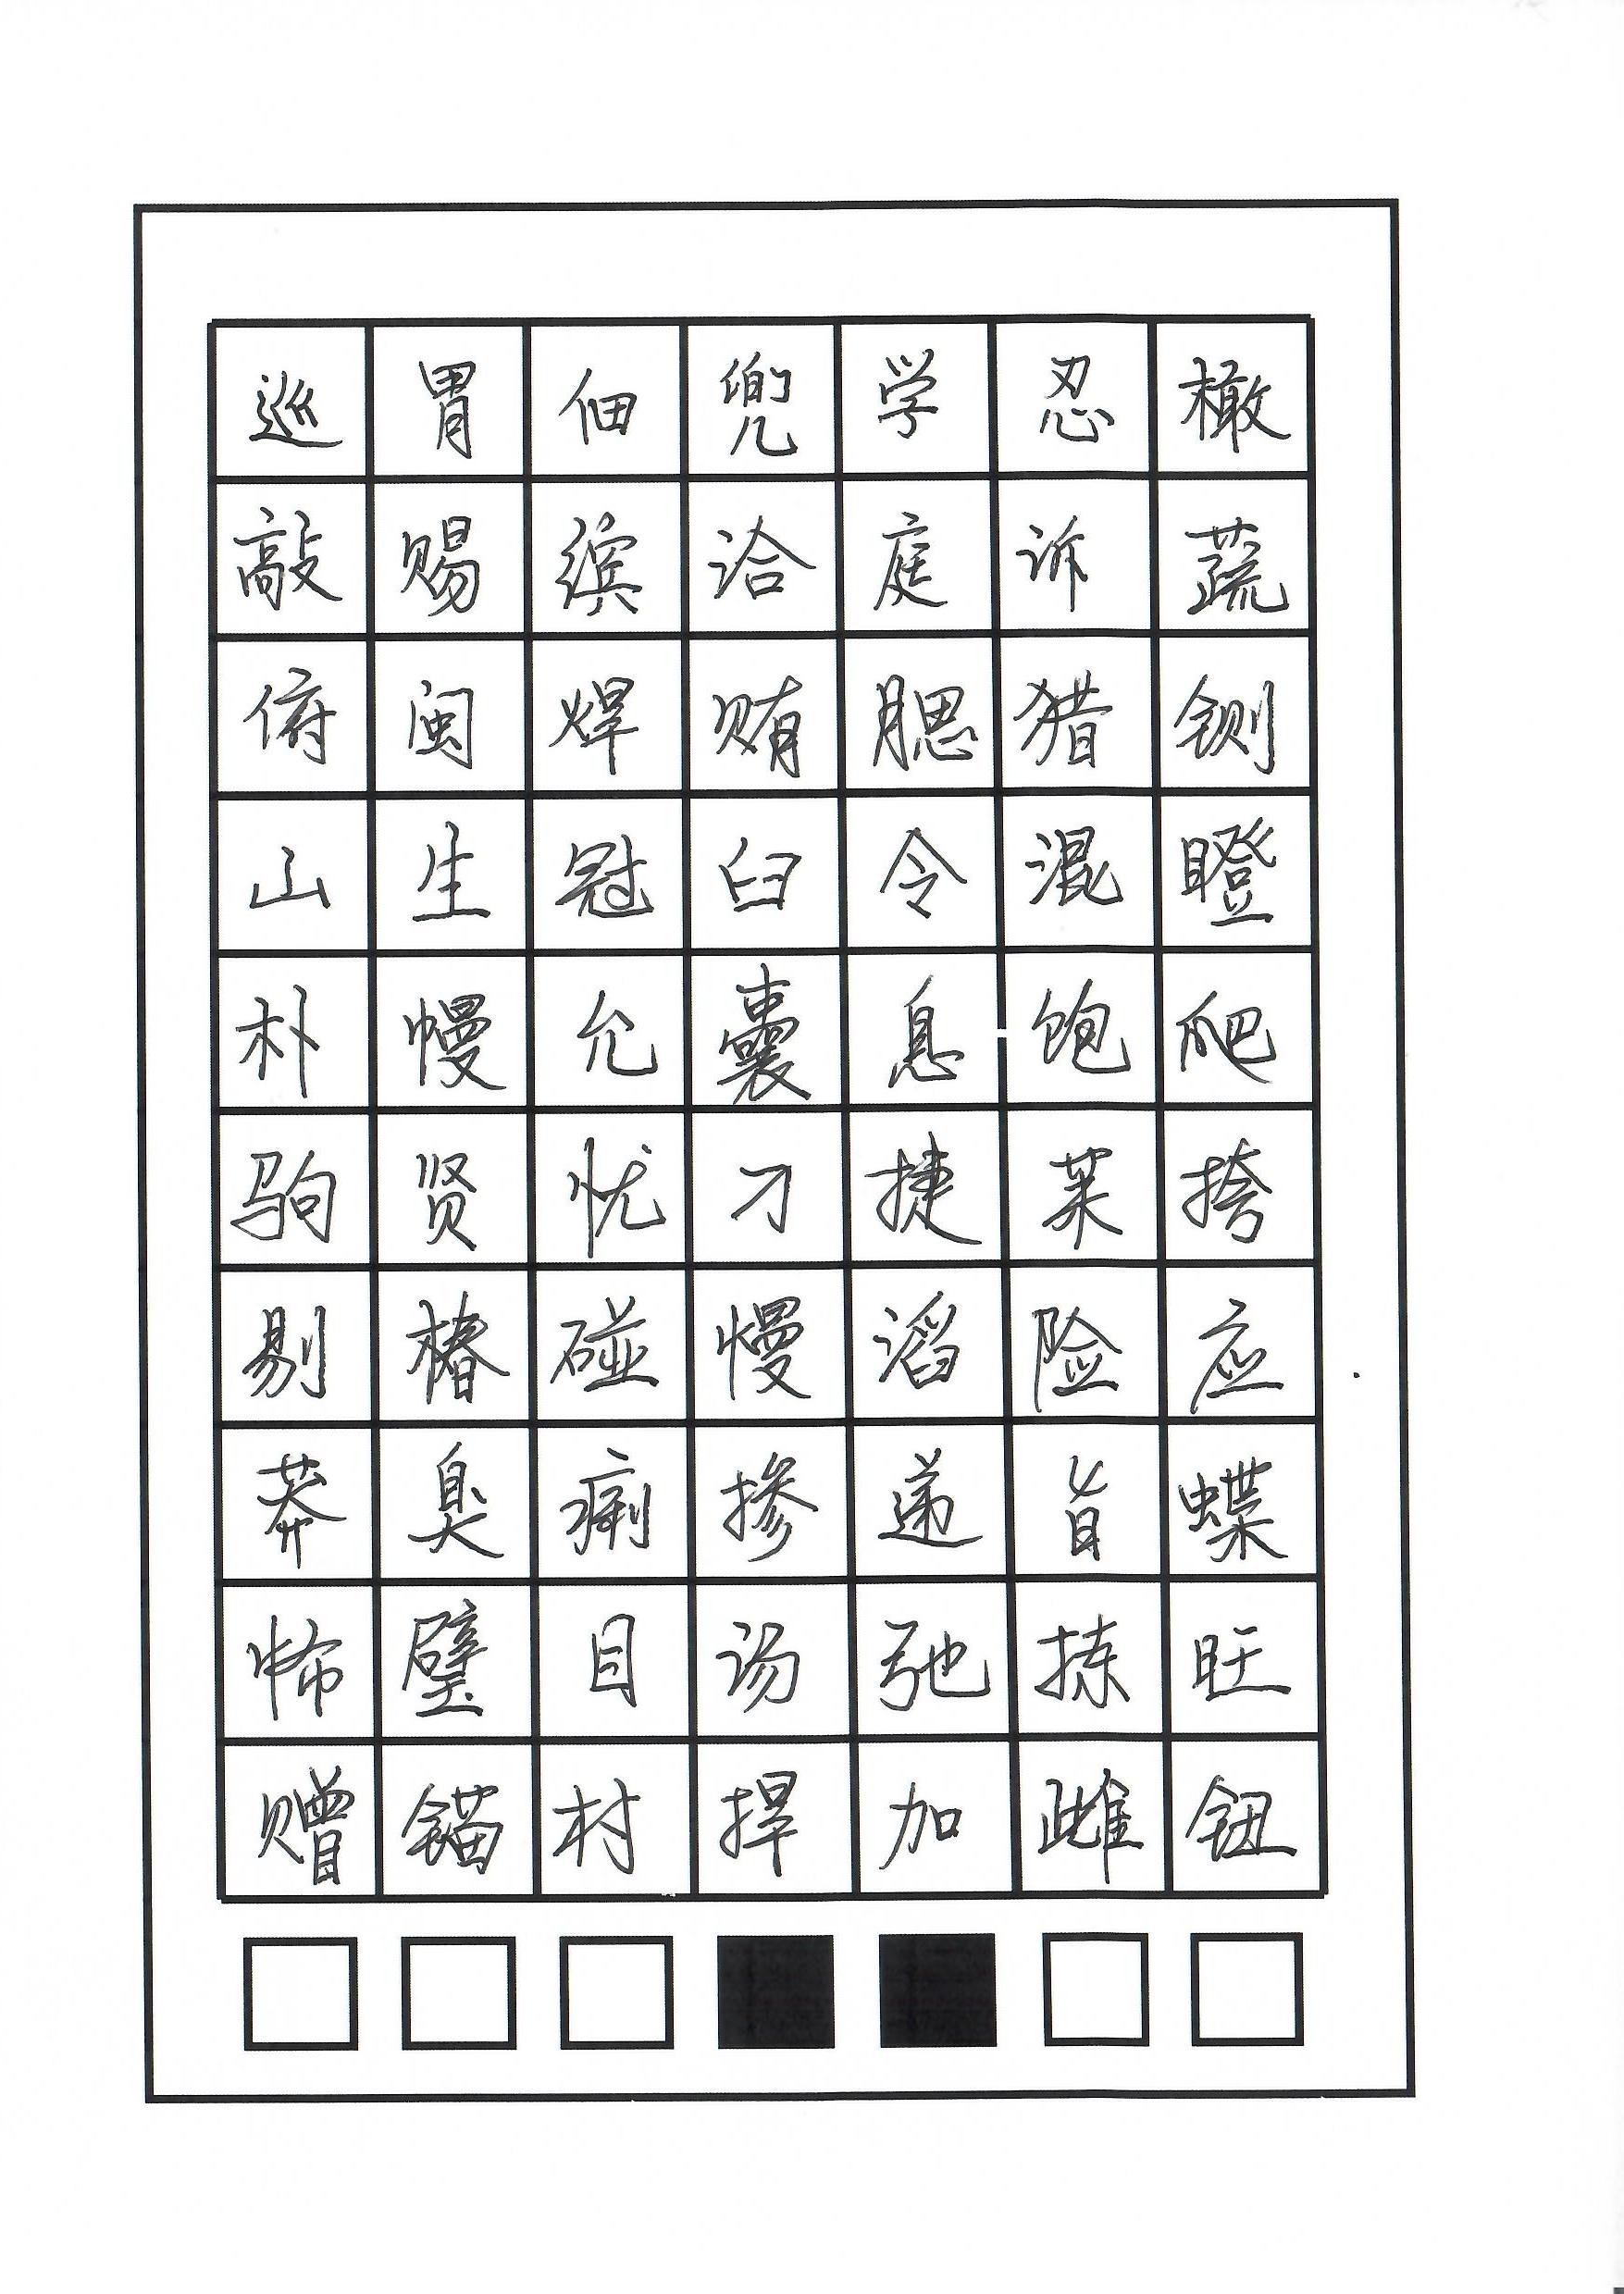 巡胃佃兜学忍橄
敲赐缤洽庭诉蔬
俯闽焊贿腮猎铡
山生冠臼令混瞪
朴幔允囊息饱爬
驹贤忧刁捷莱挎
剔椿碰慢滔险应
莽臭痢掺递旨蝶
怖璧目汤弛拣旺
赠锚村捍加雌钮